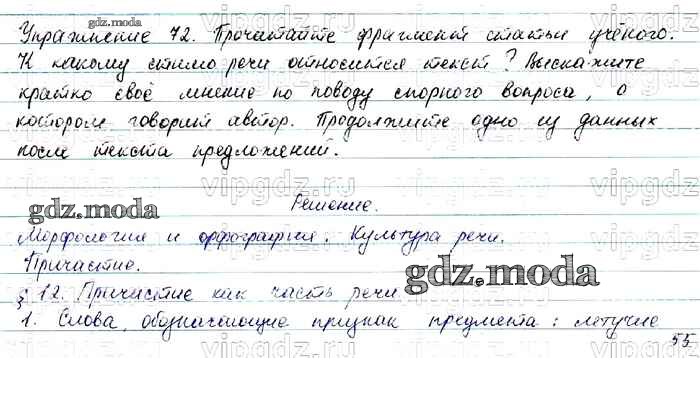 Упражнение 72. Прочитайте фрагмент статьи учёного.
К какому стилю речи относится текст? Выскажите
кратко своё мнение по поводу спорного вопроса, о
котором говорит автор. Продолжите одно из данных
после текста предложений.
Решение.
Морфология и орфография. Культура речи.
Причастие.
§ 12. Причастие как часть речи
1. Слова, обозначающие признак предмета: летучие
55
gdz.moda
gdz.moda
gdz.moda
vipgdz.ru